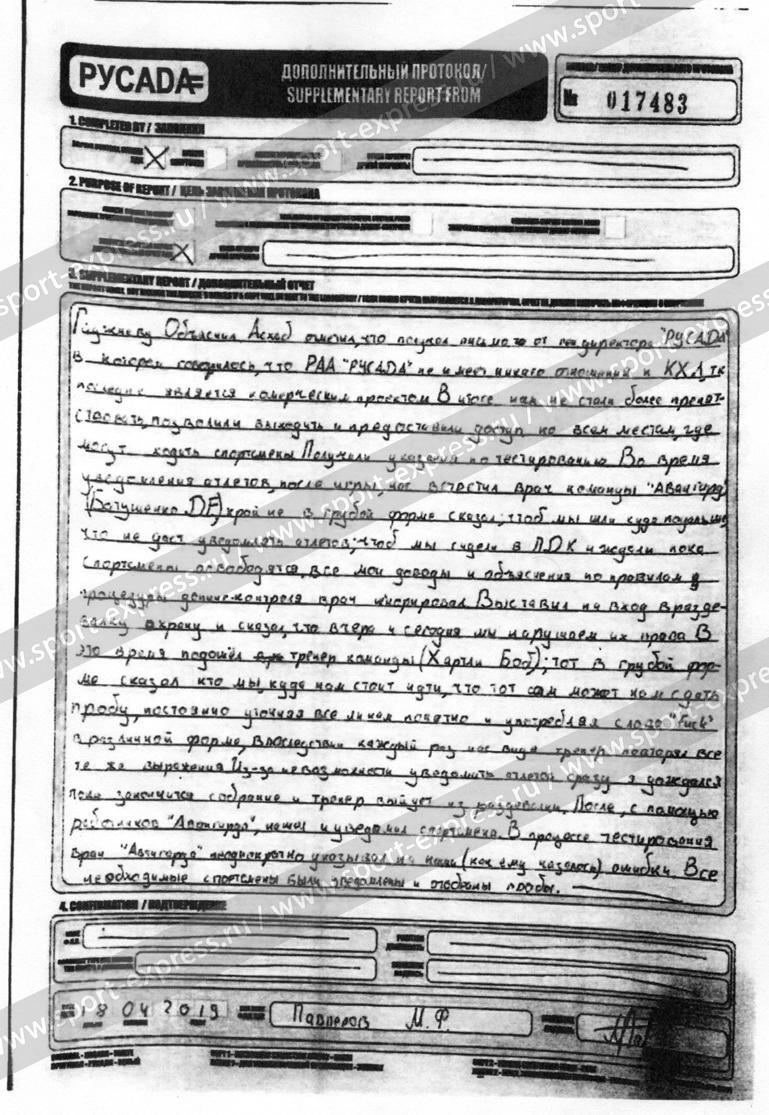 РУСАДА
ДОПОЛНИТЕЛЬНЫЙ ПРОТОКОЛ/
SUPPLEMENTARY REPORT FROM
№ 017483
1. COMPLETED BY / ЗАЯВЛЕНИЕ
2. PURPOSE OF REPORT / ЦЕЛЬ ЗАПОЛНЕНИЯ ПРОТОКОЛА
3. SUPPLEMENTARY REPORT / ДОПОЛНИТЕЛЬНЫЙ ОТЧЕТ
Объяснил Асхаб ответил, что получил письмо от гендиректора "РУСАДА"
в котором говорилось, что РАА "РУСАДА" не имеет никаго отношения к КХЛ, тк
последнее является комерческим проектом В итоге нам не стали более препят-
ствовать, позволили выходить и предоставили доступ ко всем местам, где
могут ходить спортсмены Получили указания по тестированию Во время
уведомления атлетов, после игры, нас встретил врач команды "Авангард"
(Батушенко) крайне в грубой форме сказал, чтоб мы шли куда подальше
что не даст уведомлять атлетов, чтоб мы сидели в ПДК и ждали пока
спортсмены освободятся, все мои доводы и объяснения по правилам
процедуры допинг-контроля врач игнорировал Выставил на вход в разде-
валку охрану и сказал, что вчера и сегодня мы нарушаем их права В
это время подошёл тренер команды (Хартли Боб); тот в грубой фор-
ме сказал кто мы, куда нам стоит идти, что тот сам может нам сдать
пробу, постоянно уточняя все ли нам понятно и употребляя слово "Fuck"
в различной форме, впоследствии каждый раз нас видя тренер повторял все
те же выражения Из-за невозможности уведомить атлетов сразу я дождался
пока закончится собрание и тренер выйдет из раздевалки. После, с помощью
работников "Авангарда", нашел и уведомил спортсмена. В процессе тестирования
врач "Авангарда" неоднократно указывал на наши (как ему казалось) ошибки. Все
необходимые спортсмены были уведомлены и отобраны пробы.
4. CONFIRMATION / ПОДТВЕРЖДЕНИЕ
18 04 2019
М.Ф.
www.sport-express.ru / www.sport-express.ru